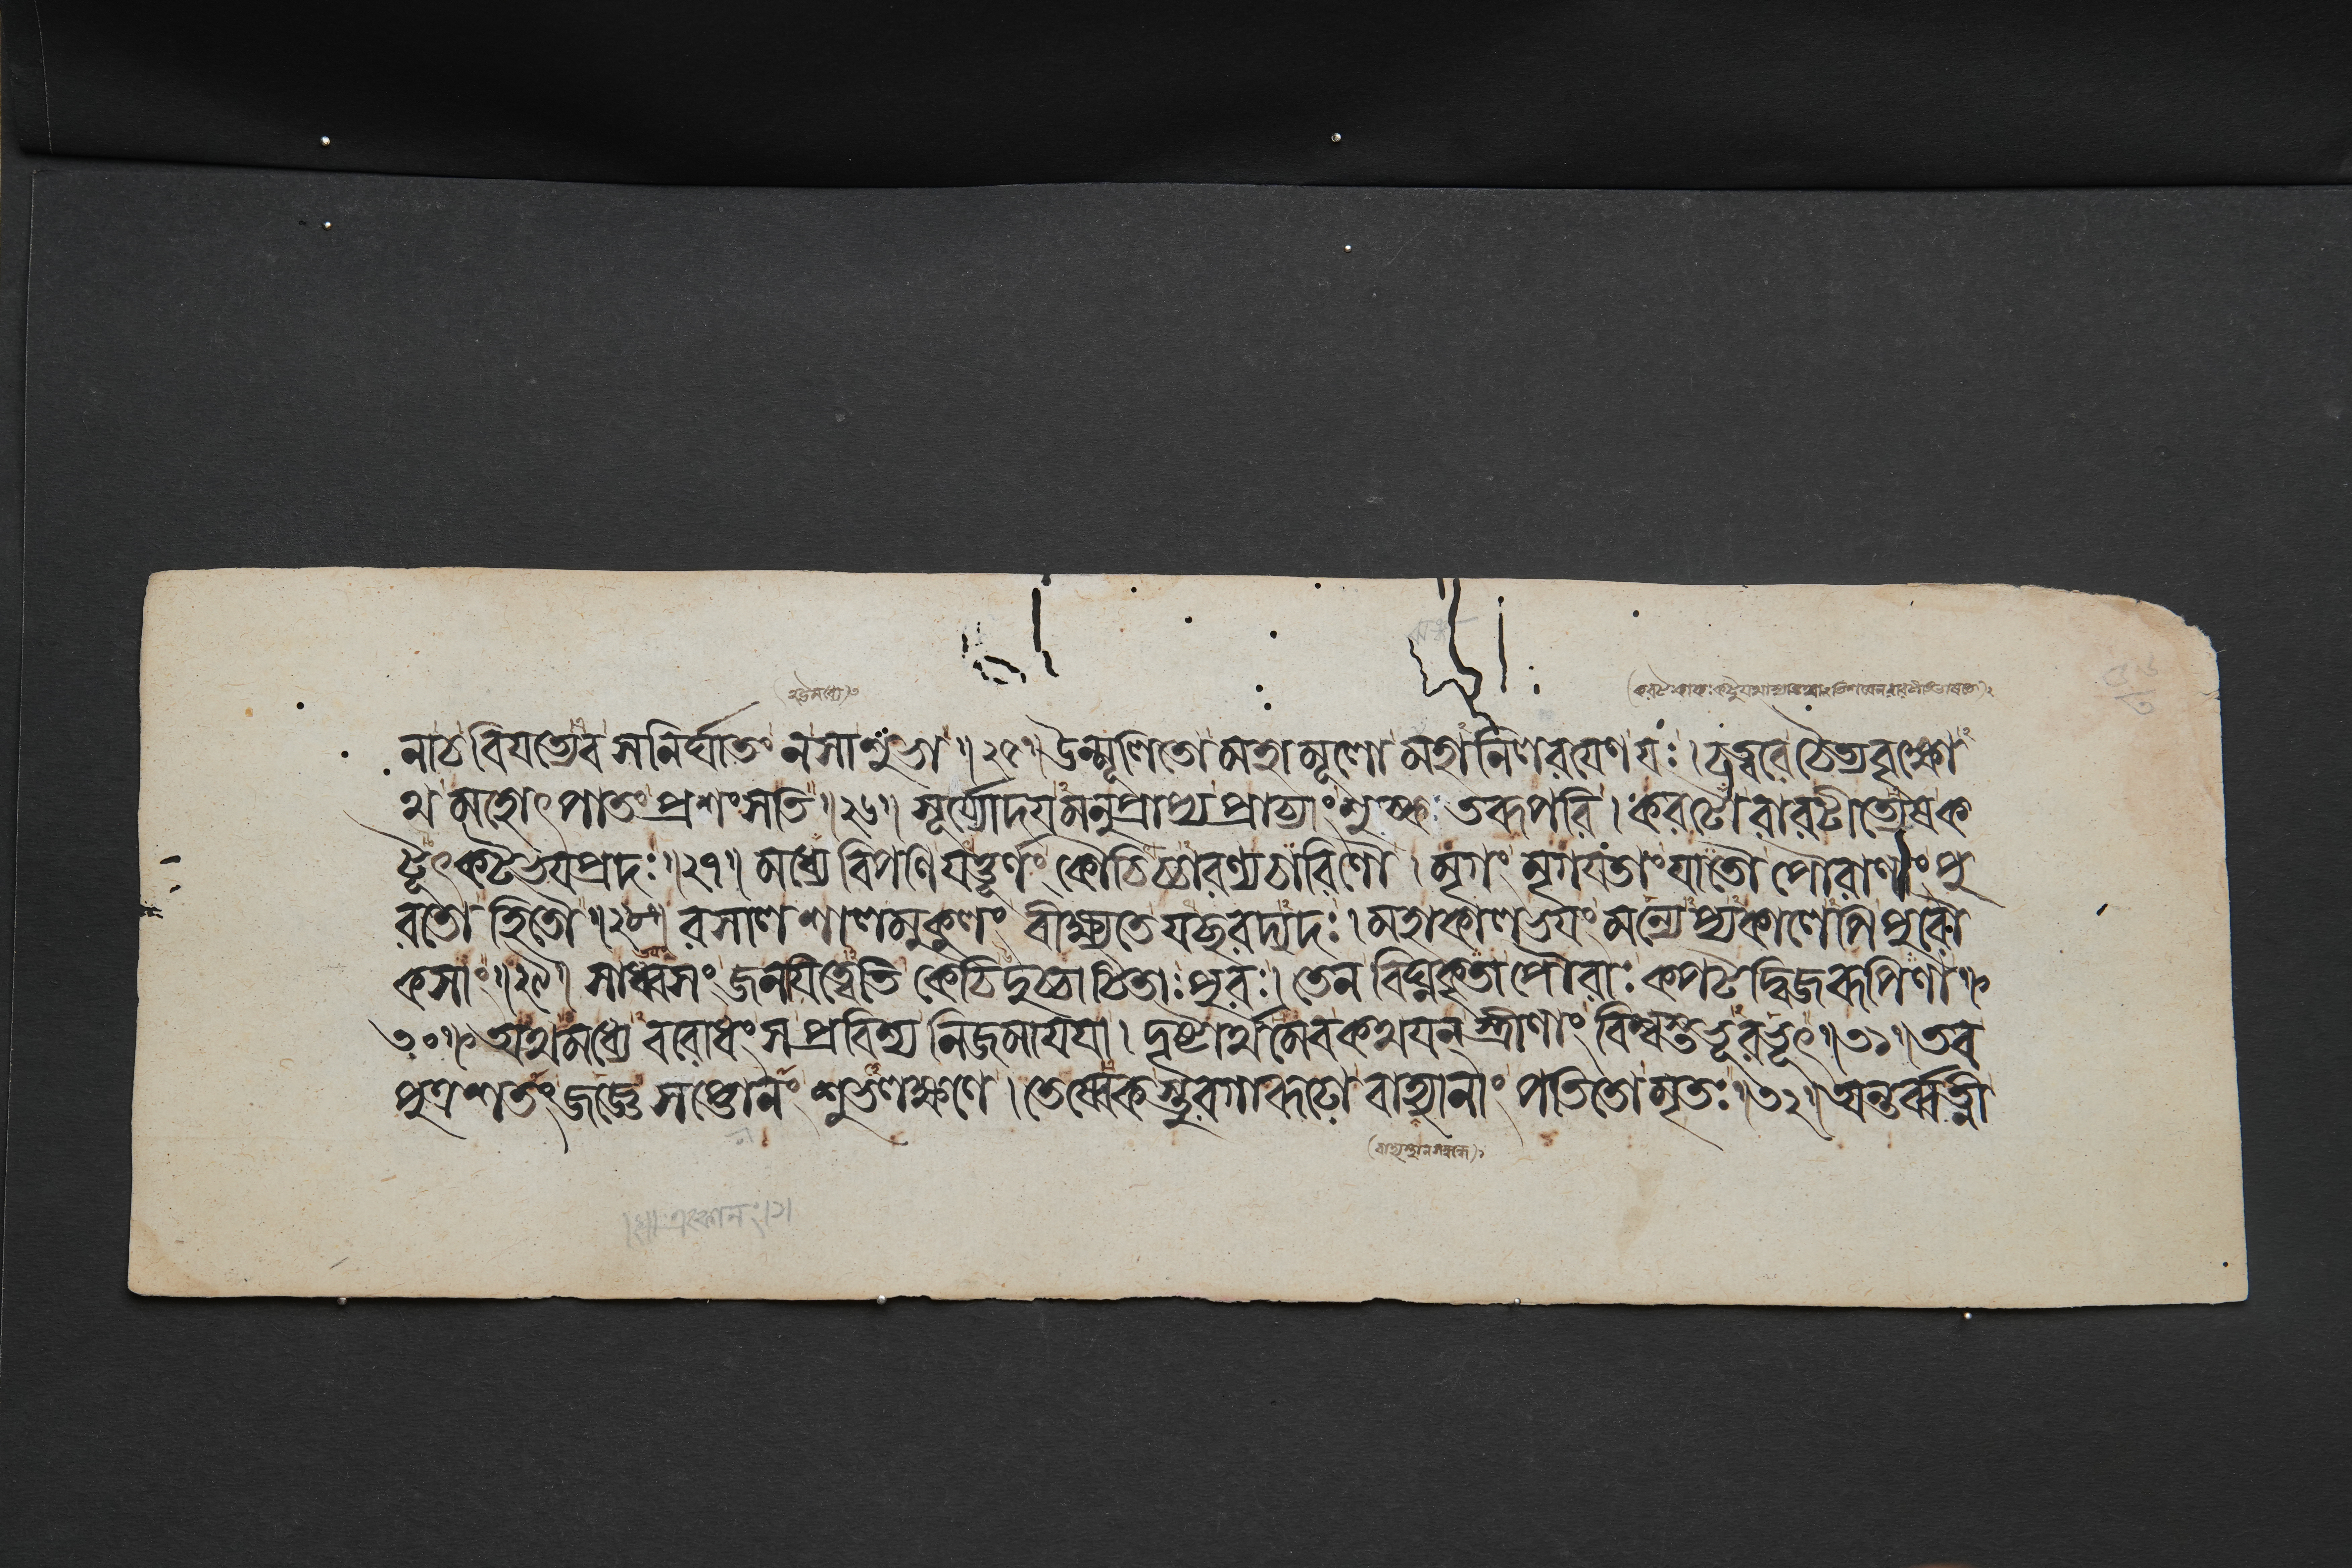 নাচ বিযত্যেব সনির্ঘাতং ন সা শুভা॥২৫॥ উন্মূলিতো মহামূলো মহানিলরযেণ যঃ। চত্বরে চৈত্যবৃক্ষো
থ মহোৎপাতং প্রশংসতি॥২৬॥ সূর্য্যোদযমনুপ্রাপ্য প্রাচ্যাং শুষ্কতরূপরি। করটো রারটীত্যেষ ক
টূৎকটভযপ্রদঃ॥২৭॥ মধ্যে বিপণি যত্তূর্ণং কৌচিচ্চারণ্যচারিণৌ। মৃগং মৃগযতাং যাতৌ পৌরাণাং পু
রতো হিতৌ॥২৮॥ রসালশালমুকুলং বীক্ষ্যতে যচ্ছরদ্যদঃ। মহাকালভযং মন্যেপ্যকালেপি পুরৌ
কসাং॥২৯॥ সাধ্বসং জনযিত্বেতি কেচিদুচ্চাটিতাঃ পুরঃ। তেন বিঘ্নকৃতা পৌরাঃ কপটদ্বিজরূপিণা॥
৩০॥ অথ মধ্যে বরোধং স প্রবিশ্য নিজমাযযা। দৃষ্টার্থমেব কথযন্ স্ত্রীণাং বিশ্বস্তভূরভূৎ॥৩১॥ তব
পুত্রশতং জজ্ঞে সপ্তোনং শুভলক্ষণে। তেষ্বেকস্তুরগারূঢো বাহ্যানাং পতিতো মৃতঃ॥৩২॥ অন্তর্ব্বত্নী